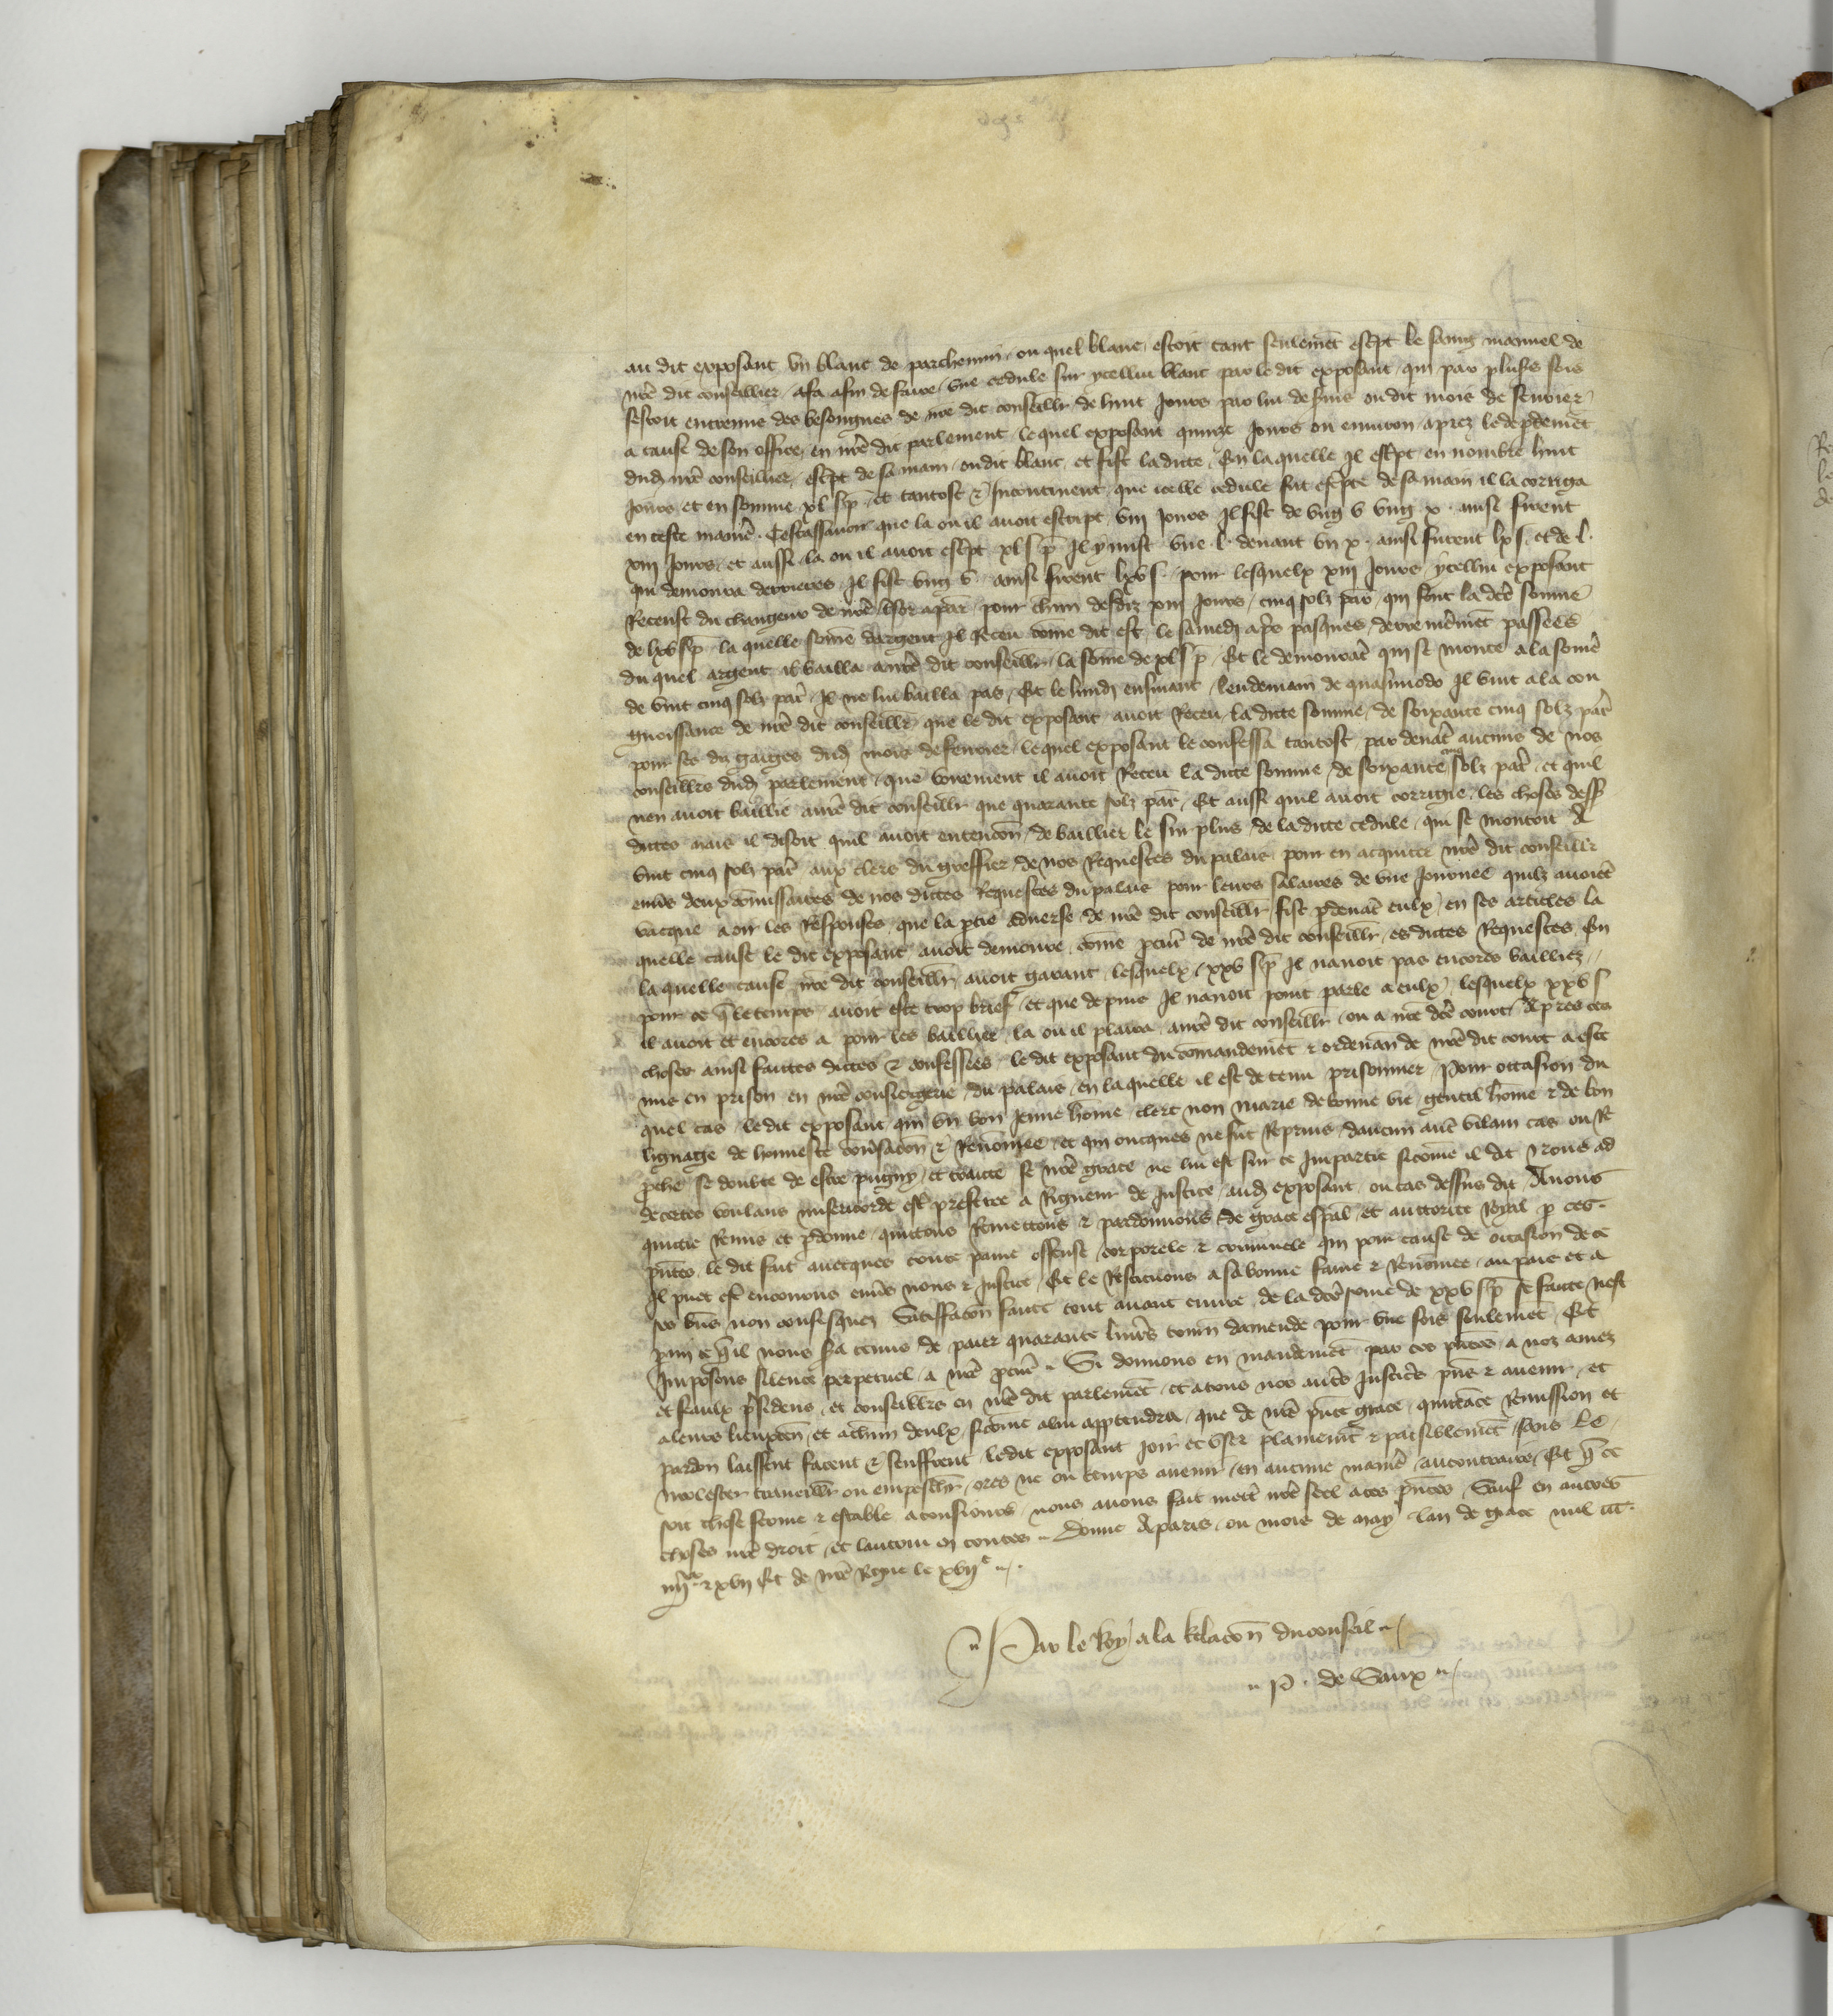 au dit exposant un blanc de parchemin ou quel blanc estoit tant seulemẽt escpt le saing manuel de
nr̃e dit conseillier afa afin de faire une cedule sur ycellui blanc par le dit exposant qui par plus̃s fois
sestoit entremis des besongnes de nr̃e dit conseillr̃ de huit Jours par lui desseruis ou dit mois de feurier
a cause de son office en nr̃e dit parlement lequel exposant quinze Jours ou enuiron aprez le dep̃demẽt
dud nr̃e conseillier escpt de sa main ou dit blanc et fist la dicte En laquelle Il escpt en nombre huit
Jours et en somme xl s p̃ et tantost & Incontinent que icelle cedule fut escpte de sa main il la corriga
en ceste manie. Cestassauoir que la ou il auoit escript viij Jours Il fist de ung v ung x. ainsi furent
xiij Jours et aussi la ou il auoit escpt xl s p̃ Il y mist une l. deuant un x. ainsi furent lx s. et de l.
qui demoura derrieres Il fist ung v ainsi furent lxv s. pour lesquelx xiij Jours ycellui exposant
Receust du changeur de nr̃e tresor a par̃ pour chũn desdiz xiij Jours cinq solz par̃ qui sont la dcẽ somme
de lxv s p̃ la quelle sõme dargent Il Receu cõme dit est le samedj apr̃s pasques derrenieremẽt passees
du quel argent il bailla a nr̃e dit conseillr̃ la sõme de xl s p̃ Et le demourãt qui se monte a la sõme
de vint cinq solz par̃ Il ne lui bailla pas Et le lundj ensuiant lendemain de quasimodo Il vint a la con
gnoissance de nr̃e dit conseillr̃ que le dit exposant auoit Receu la dicte somme de soixante cinq solz par̃
pour ses diz gaiges dud mois de feurier lequel exposant le confessa tantost par deuãt aucuns de nos
conseillrs dud parlement que voirement il auoit Receu la dicte somme de soixante cinq solz par̃ et quil
nen auoit baillie a nr̃e dit conseillr̃ que quarante solz par̃ Et aussi quil auoit corrigie les choses dess
dictes mais il disoit quil auoit entencõn de baillier le sur plus de la dicte cedule qui se montoit A
vint cinq solz par̃ aux clers du greffier de nos Requestes du palais pour en acquiter nr̃e dit conseillr̃
enũs deux cõmissaires de nos dictes Requestes du palais pour leurs salaires de une Journee quilz auoiẽt
vacque a oir les Responses que la p̃tie aduerse de nr̃e dit conseillr̃ fist p̃ deuãt eulx en ses articles la
quelle cause le dit exposant auoit demoure cõme p̃cur̃ de nr̃e dit conseillr̃ es dictes Requestes En
la quelle cause nr̃e dit conseillr̃ auoit garant lesquelx xxv s p̃ Il nauoit pas encores bailliez
pour ce q̃ le temps auoit este trop brief et que depuis Il nauoit point parle a eulx lesquelx xxv s
il auoit et encores a pour les baillier la ou il plaira a nr̃e dit conseillr̃ ou a nr̃e dcẽ court Apres ces
choses ainsi faictes dictes & confessees le dit exposant du cõmandemẽt & ordenan de nr̃e dit court a este
mis en prison en nr̃e conciergerie du palais en laquelle il est detenu prisonnier Pour occasion du
quel cas le dit exposant qui un bon Jeune hõme clerc non marie de bonne vie gentil hõme & de bon
lignage de honneste conũsacõn & Renõmee et qui oncques ne fut Reprins daucun autr̃e vilain cas ou Re
p̃che se doubte de estre pugny et traictie se nr̃e grace ne lui est sur ce Impartie sicõme il dit Nous ad
decertes voulans misericorde estr̃ preferee a Rigueur de Justice aud exposant ou cas dessus dit Auons
quittie Remis et p̃donne quittons Remettons & pardonnons de grace esp̃al et auctorite Royal p ces
p̃ntes le dit fait auecques toute paine offense corporele & criminele qui pour cause de occasion de ce
Il puet estr̃ encouruz enũs nous & Justice Et le Restituons a sa bonne fame & Renõmee au pais et a
ses biẽs non confisquez Satisfacõn faicte tout auant euure de la dcẽ sõme de xxv s p̃ se faicte nest
p̃mi ce q̃ il nous s̃ra tenus de paier quarante liures tourn damende pour une fois seulemẽt Et
Imposons silence perpetuel a nr̃e p̃cur̃ Si donnons en mandemẽt par ces p̃ntes a noz amez
et feaulx p̃sidens et conseillrs en nr̃e dit parlemẽt et a tous nos autr̃s Justiciẽs p̃ns & auenir et
a leurs lieuxteñ et a chũn deulx sicõme a lui appartendra que de nr̃e p̃nte grace quictãce Remission et
pardon laissent facent & seuffrent le dit exposant Joir et user plainemẽt & paisiblemẽt sans Le
molester trauaillr̃ ou empeschr̃ ores ne ou temps auenir en aucune manie au contraire Et q̃ ce
soit chose ferme & estable a tousiours nous auons fait mettr̃ nr̃e seel a ces p̃ntes Sauf en autres
choses nr̃e droit et lautrui en toutes Donne A paris ou mois de may lan de grace mil ccc.
iiijxx & xvij Et de nr̃e Regne le xvije
Par le Roy a la Relacõn du conseil
P. de Vaux